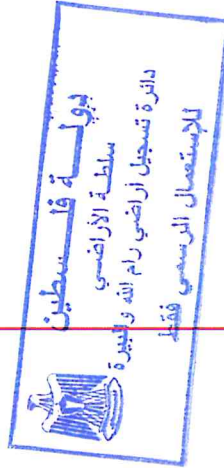 دولة فلسطين
سلطة الأراضي
دائرة تسجيل أراضي رام الله والبيرة
للإستعمال الرسمي فقط